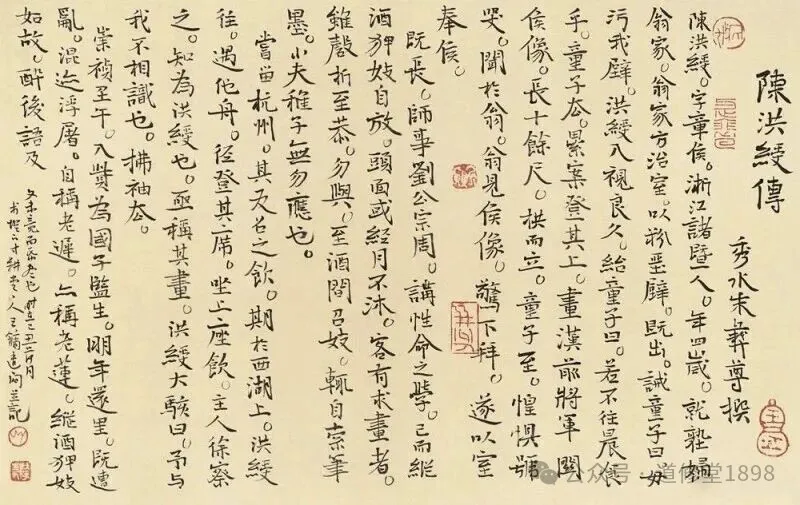 陳洪綬傳
秀水朱彝尊撰
陳洪綬。字章侯。浙江諸暨人。年四歲。就塾婦
翁家。翁家方治室。以粉堊壁。既出。誡童子曰。毋
污我壁。洪綬入視良久。紿童子曰。若不往晨食
乎。童子去。累案登其上。畫漢前將軍關
侯像。長十餘尺。拱而立。童子至。惶懼號
哭。聞於翁。翁見侯像。驚下拜。遂以室
奉侯。
既長。師事劉公宗周。講性命之學。已而縱
酒狎妓自放。頭面或經月不沐。客有求畫者。
雖罄折至恭。勿與。至酒間召妓。輒自索筆
墨。小夫稚子無勿應也。
嘗留杭州。其友召之飲。期於西湖上。洪綬
往。遇他舟。徑登其席。坐上座飲。主人徐察
之。知為洪綬也。亟稱其畫。洪綬大駭曰。予與
我不相識也。拂袖去。
崇禎壬午。入貲為國子監生。明年還里。既遭
亂。混迹浮屠。自稱老遲。亦稱老蓮。縱酒狎妓
如故。醉後語及
文未竟而紙盡也
公众号·道佰堂1898